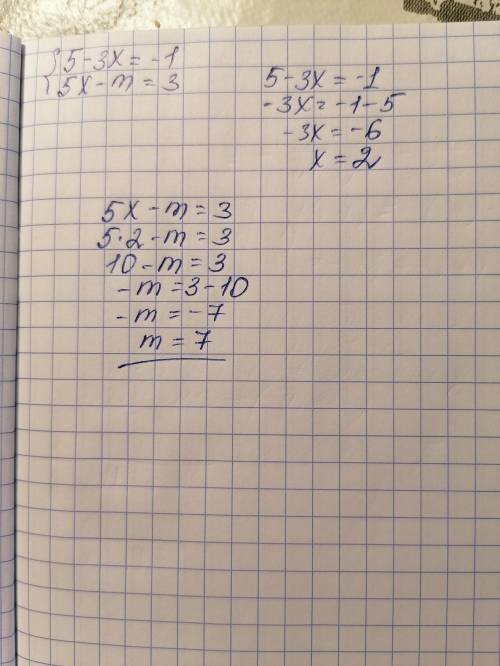 { 5-3x = -1
5x-m = 3
5-3x = -1
-3x = -1-5
-3x = -6
x = 2
5x - m = 3
5·2 - m = 3
10 - m = 3
-m = 3-10
-m = -7
m = 7